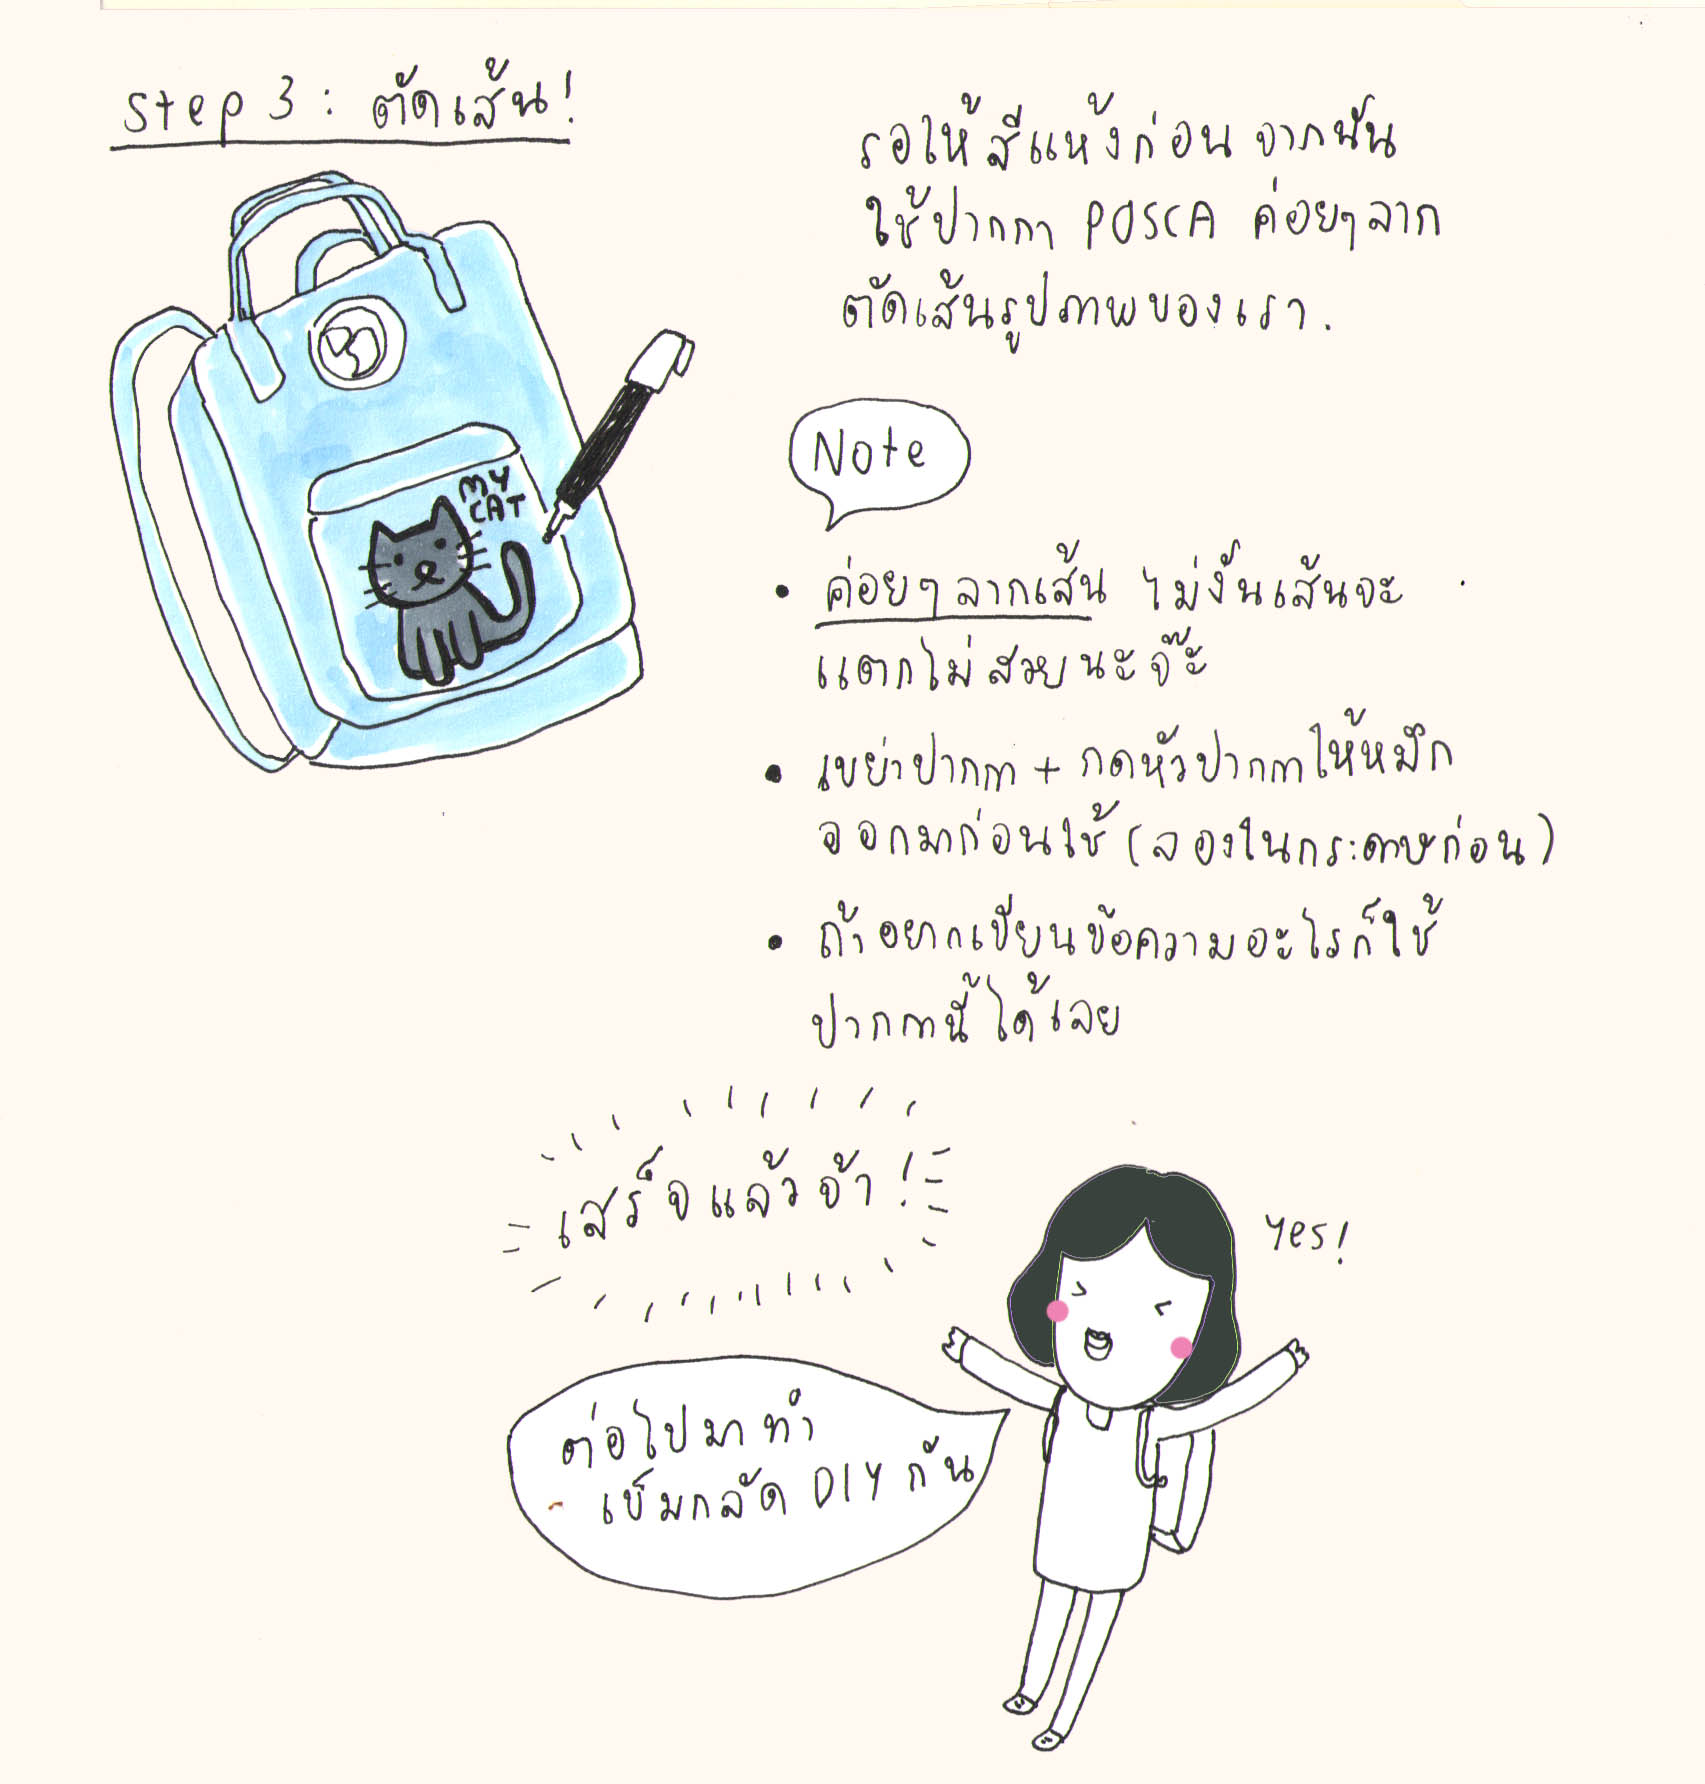 Step 3 : ตัดเส้น!
รอให้สีแห้งก่อน จากนั้น
ใช้ปากกา POSCA ค่อยๆลาก
ตัดเส้นรูปภาพของเรา.
MY
CAT
Note
• ค่อยๆ ลากเส้น ไม่งั้นเส้นจะ
แตกไม่สวยนะจ๊ะ
• เขย่าปากกา + กดหัวปากกาให้หมึก
ออกมาก่อนใช้ (ลองในกระดาษก่อน)
• ถ้าอยากเขียนข้อความอะไรก็ใช้
ปากกานี้ได้เลย
เสร็จแล้วจ้า!
Yes!
ต่อไปมาทำ
เข็มกลัด DIY กัน